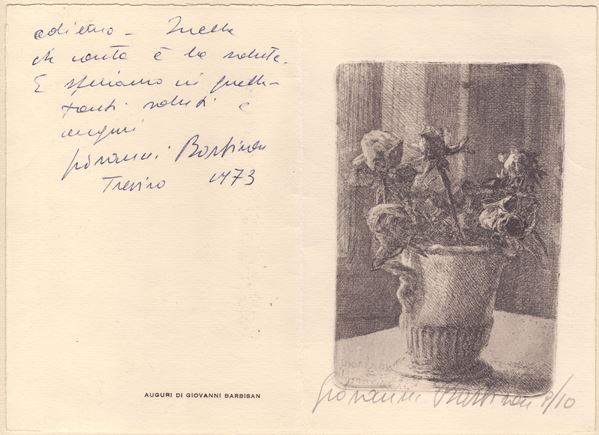 addietro - Quella
che conta è la salute.
E speriamo in quella -
Tanti saluti e
auguri
Giovanni Barbisan
Treviso 1973
AUGURI DI GIOVANNI BARBISAN
Giovanni Barbisan 8/10